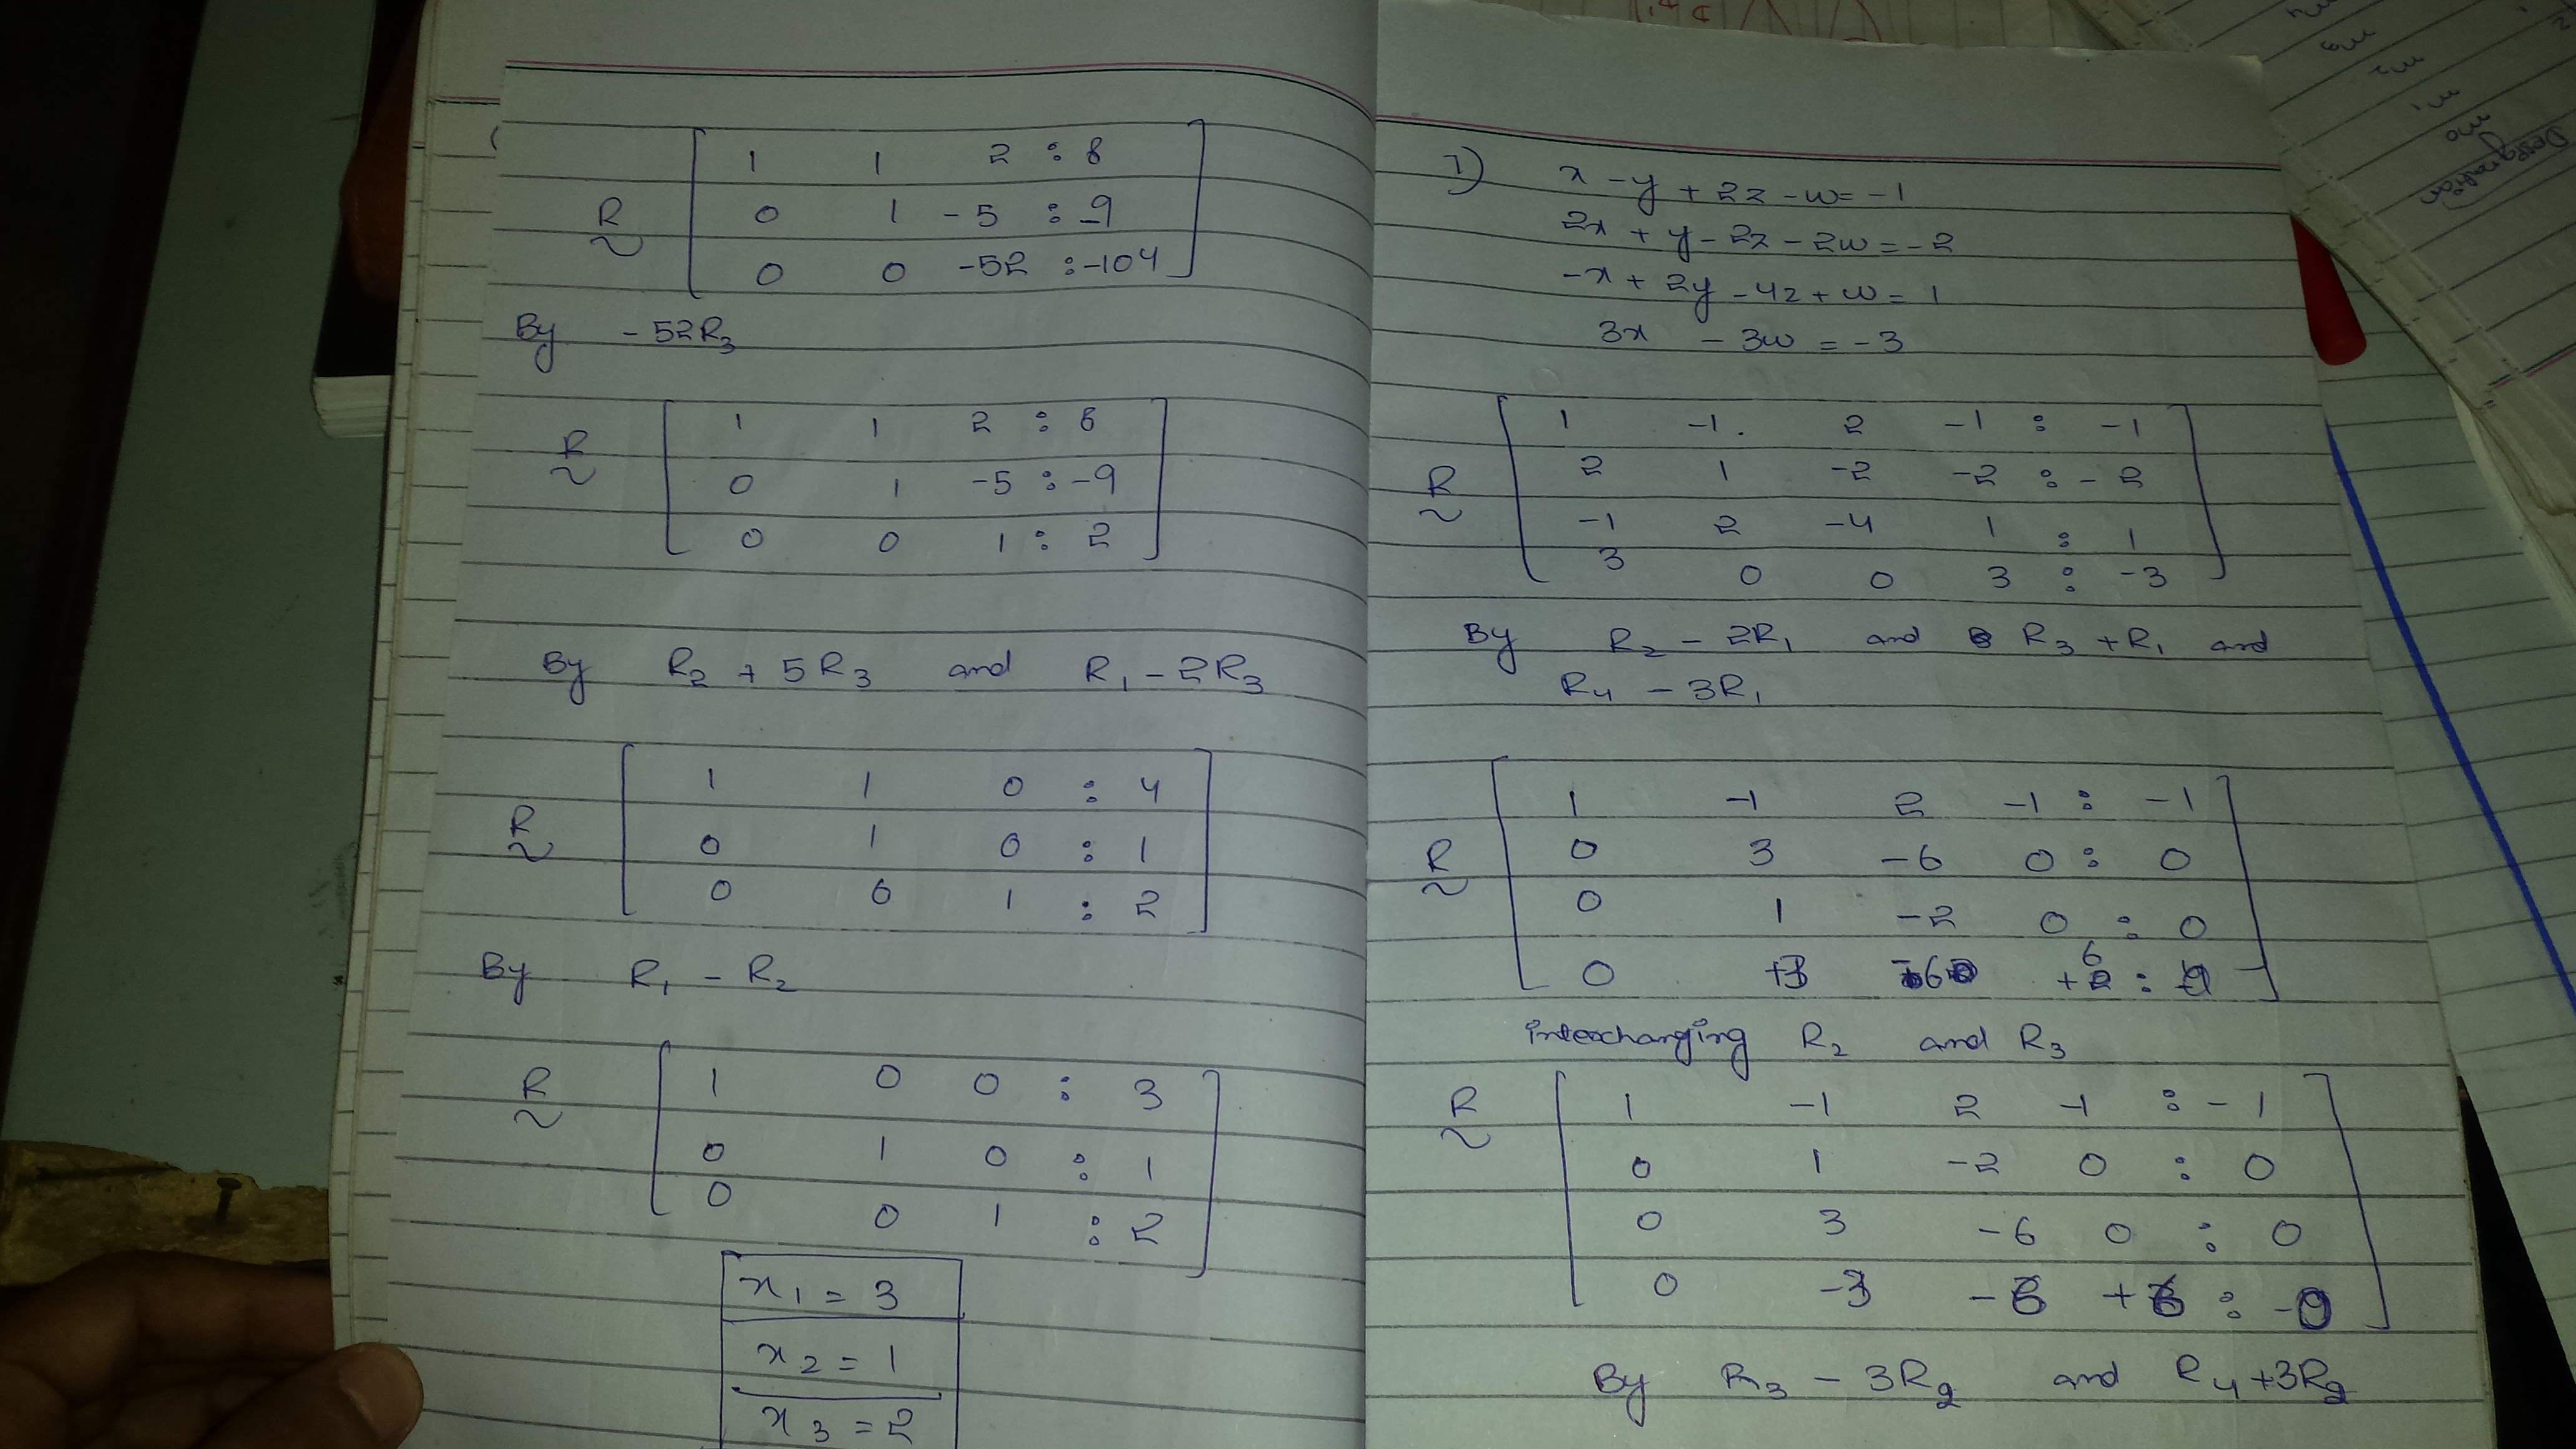 1 1 2 : 8
R ~ 0 1 -5 : -9
0 0 -52 : -104
By -52R3
1 1 2 : 8
R ~ 0 1 -5 : -9
0 0 1 : 2
By R2 + 5R3 and R1 - 2R3
1 1 0 : 4
R ~ 0 1 0 : 1
0 0 1 : 2
By R1 - R2
R ~ 1 0 0 : 3
0 1 0 : 1
0 0 1 : 2
x1 = 3
x2 = 1
x3 = 2
7) x - y + 2z - w = -1
2x + y - 2z - 2w = -2
-x + 2y - 4z + w = 1
3x - 3w = -3
1 -1 2 -1 : -1
R ~ 2 1 -2 -2 : -2
-1 2 -4 1 : 1
3 0 0 3 : -3
By R2 - 2R1 and R3 + R1 and
R4 - 3R1
1 -1 2 -1 : -1
R ~ 0 3 -6 0 : 0
0 1 -2 0 : 0
0 +3 6 :
interchanging R2 and R3
R ~ 1 -1 2 -1 : -1
0 1 -2 0 : 0
0 3 -6 0 : 0
0 -3 : -0
By R3 - 3R2 and R4 + 3R2
Designation
m0
m1
m2
m3